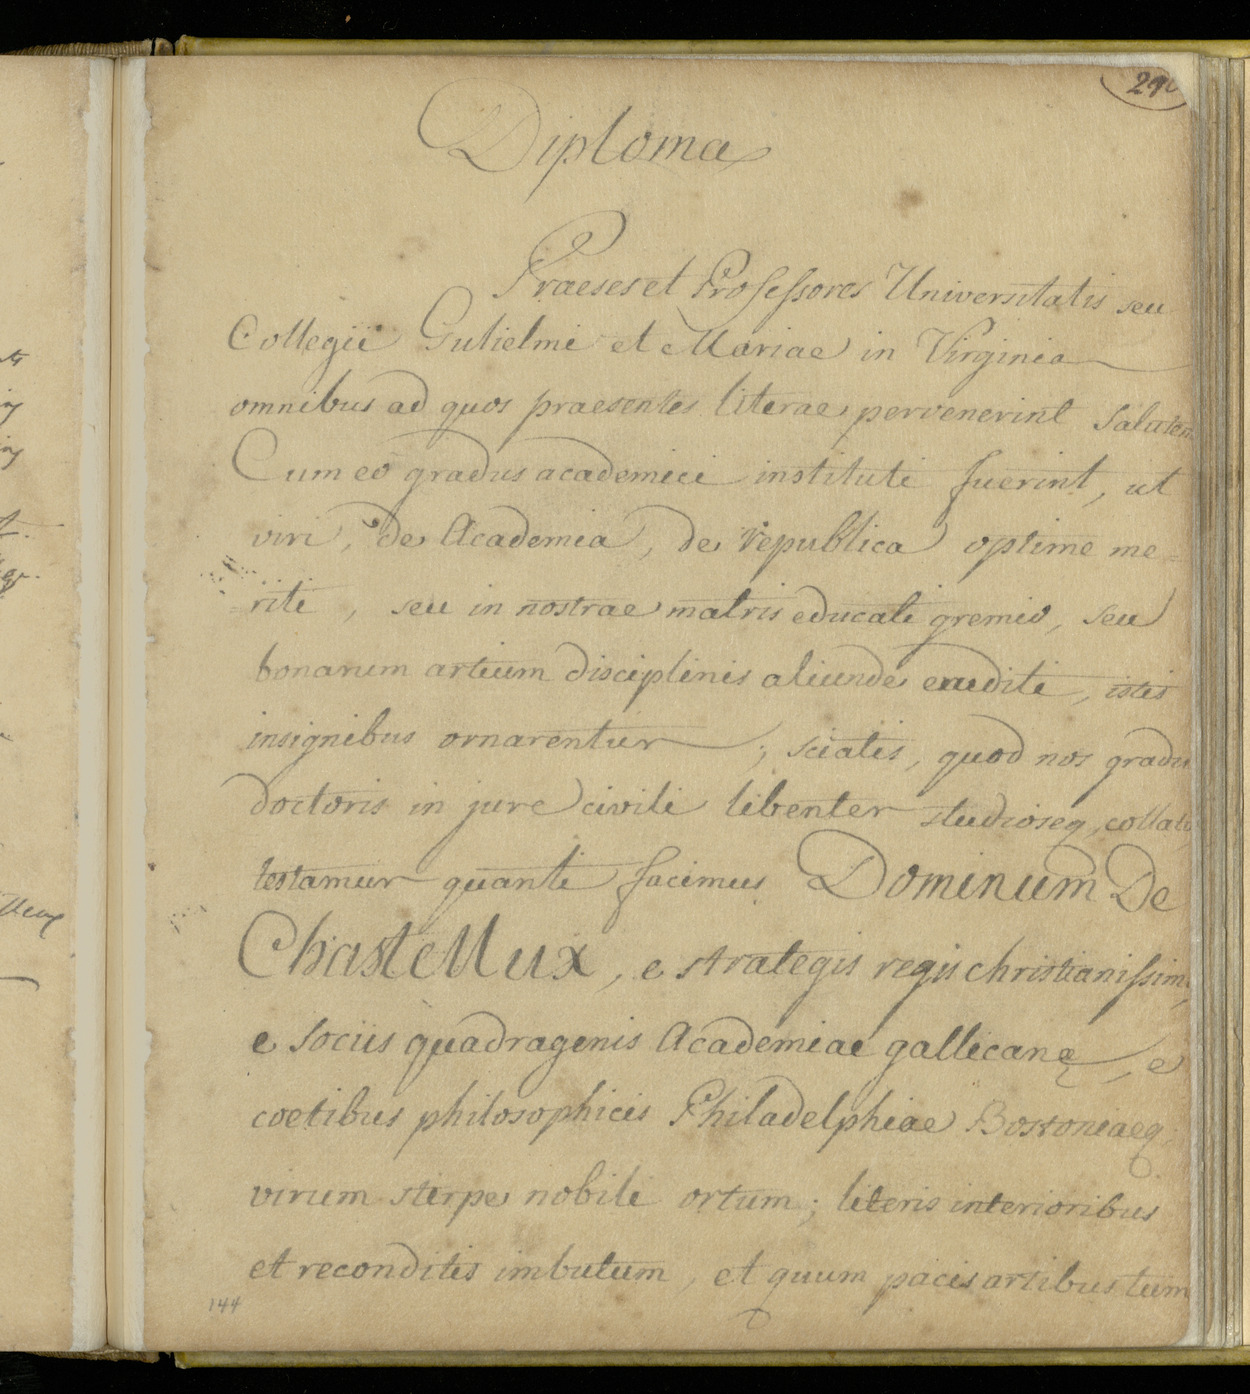 Diploma
Praeses et Professores Universitatis seu
Collegii Gulielmi et Mariae in Virginia
omnibus ad quos praesentes literae pervenerint Salutem
Cum eo gradus academici instituti fuerint, ut
viri, de Academia, de republica optime me-
riti, seu in nostrae matris educati gremio, seu
bonarum artium disciplinis aliunde eruditi, istis
insignibus ornarentur; sciatis, quod nos gradu
doctoris in jure civili libenter studioseq, collato
testamur quanti facimus Dominum De
Chastellux, e strategis regis christianissimi,
e sociis quadragenis Academiae gallicanę, e
coetibus philosophicis Philadelphiae Bostoniaeq;
virum stirpe nobili ortum; literis interioribus
et reconditis imbutum, et quum pacis artibus tum
144